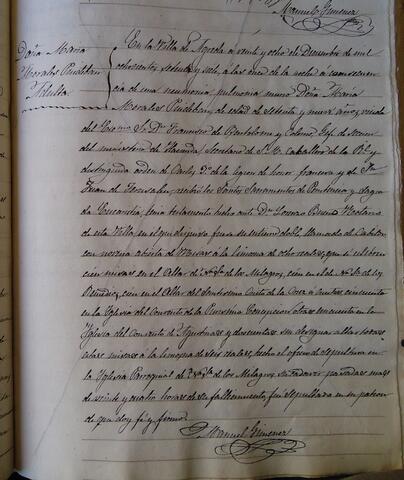 Manuel Gimenez
Doña Maria
Morales Pendeban
Adulta
En la Villa de Agreda a veinte y ocho de Diciembre de mil
ochocientos setenta y siete, a las once de la noche a consecuen
cia de una neumonia pulmonia murio Doña Maria
Morales Pendeban, de edad de setenta y nueve años, y viuda
del Excmo. S. Dn. Francisco de y Colome, Gefe de
del ministerio de Hacienda, Secretario de S. M. Caballero de la Rl. y
distinguida orden de Carlos 3º. de la legion de honor francesa y de Sn.
Juan de Jerusalen, recibió los Santos Sacramentos de Penitencia y Sagra
da Eucaristia, tenia testamento hecho ante Dn. Lorenzo Bueno Notario
de esta Villa, en el que dispuso fuese su entierro doble, llamado de Cabildo
con novena abierta de Misas a la limosna de ocho reales, que se celebra
cien misas en el Altar de Ntra. Sra. de los Milagros, cien en el de Ntra. Sa. de los
Remedios, cien en el Altar del Santisimo Cristo de la Cruz a cuestas, cincuenta
en la Iglesia del Convento de la Purisima Concepcion, otras cincuenta en la
Iglesia del Convento de Agustinas y doscientas sin designar altar todas
estas misas a la limosna de seis reales, hecho el oficio de sepultura en
la Iglesia Parroquial de Ntra. Sra. de los Milagros, su cadaver pasadas mas
de veinte y cuatro horas de su fallecimiento, fue sepultada en su patron
de que doy fé y firmo.
Manuel Gimenez